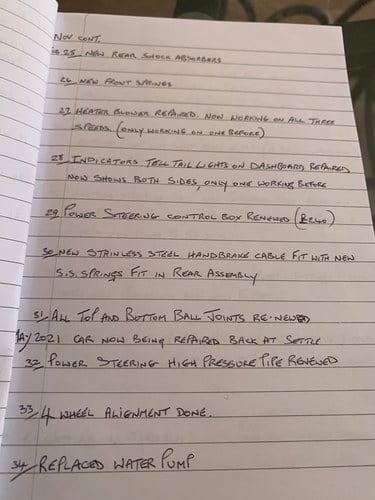 Nov cont.
25. New Rear Shock Absorbers
26 New Front Springs
27 Heater Blower Repaired. Now working on all three
speeds. (only working on one before)
28 Indicators tell tail lights on dashboard repaired
now shows both sides, only one working before
29 Power Steering control box renewed (£240)
30 New stainless steel handbrake cable fit with new
S.S. springs fit in rear assembly
31 All top and bottom ball joints re-newed
May 2021 car now being repaired back at Settle
32 Power Steering high pressure pipe renewed
33 4 wheel alignment done.
34 Replaced water pump